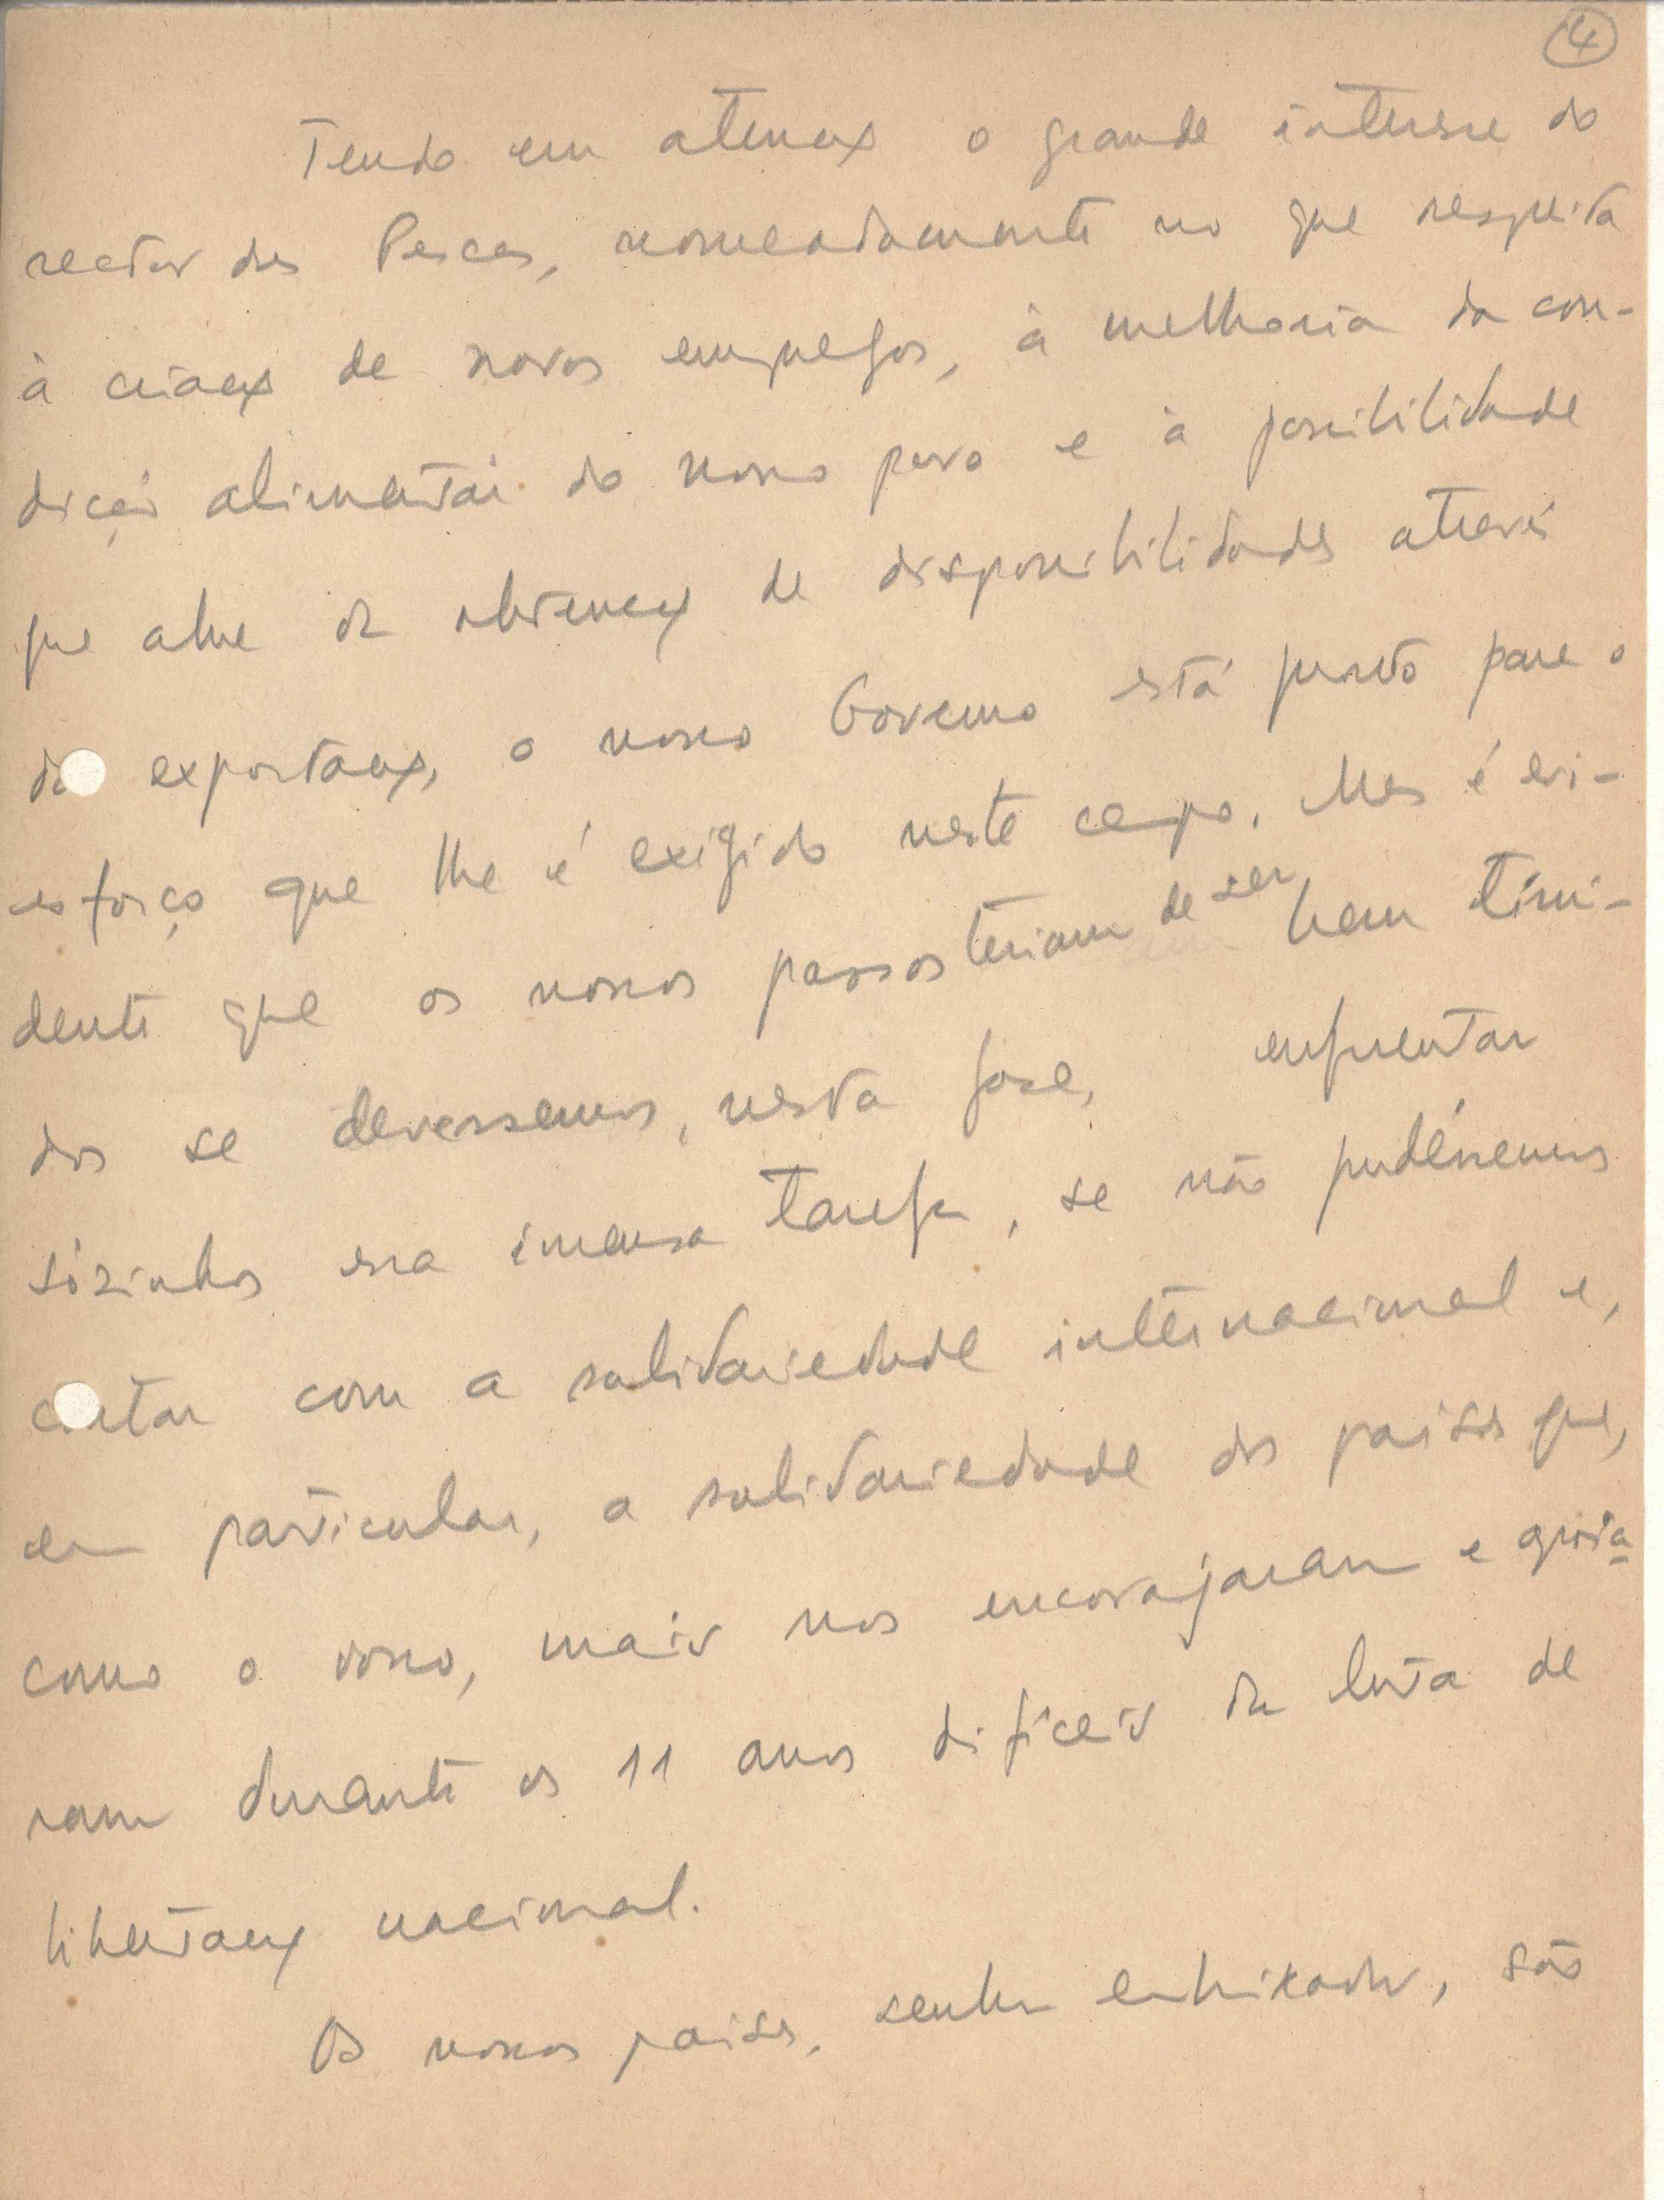 4
Tendo em atenção o grande interesse do
sector das Pescas, nomeadamente no que respeita
à criação de novos empregos, à melhoria da con-
dição alimentar do nosso povo e à possibilidade
que abre de obtenção de disponibilidades através
da exportação, o nosso Governo está pronto para o
esforço que lhe é exigido neste campo. Mas é evi-
dente que os nossos passos teriam de ser bem tími-
dos se devessemos, nesta fase, enfrentar
sòzinhos essa imensa tarefa, se não pudéssemos
contar com a solidariedade internacional e,
em particular, a solidariedade dos países que,
como o vosso, mais nos encorajaram e apoia
ram durante os 11 anos difíceis da luta de
libertação nacional.
Os nossos países, senhor embaixador, são